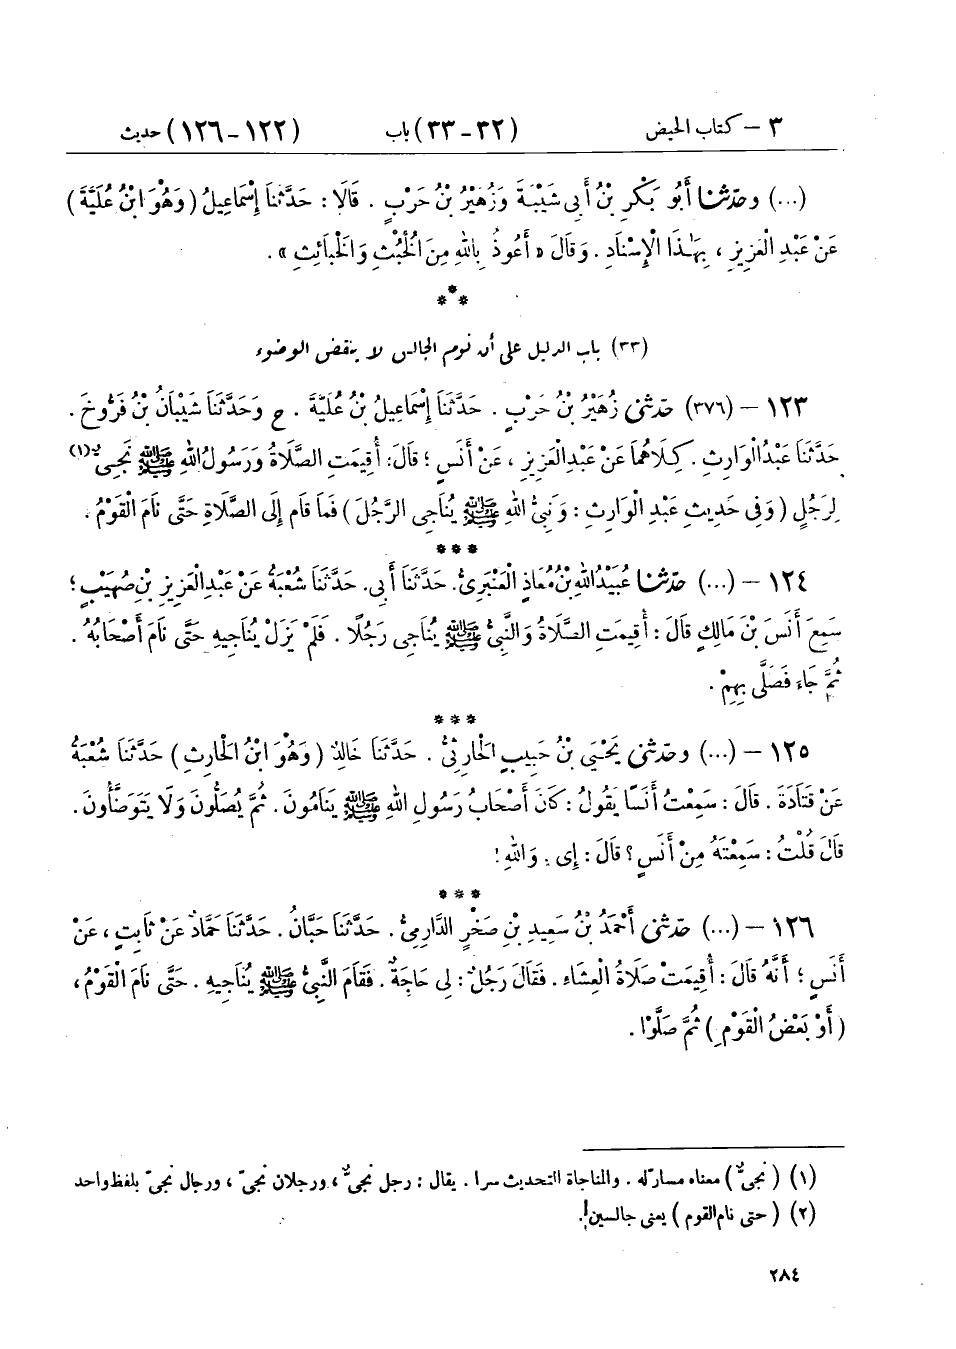 ٣ – كتاب الحيض (٣٢ – ٣٣) باب (١٢٢ – ١٢٦) حديث
(...) وحَدَّثَنَا أَبُو بَكْرِ بْنُ أَبِي شَيْبَةَ وَزُهَيْرُ بْنُ حَرْبٍ . قَالَا : حَدَّثَنَا إِسْمَاعِيلُ ( وَهُوَ ابْنُ عُلَيَّةَ )
عَنْ عَبْدِ الْعَزِيزِ ، بِهَـٰذَا الْإِسْنَادِ . وَقَالَ « أَعُوذُ بِاللهِ مِنَ الْخُبُثِ وَالْخَبَائِثِ » .
***
(٣٣) باب الدليل على أن نوم الجالس لا ينقض الوضوء
١٢٣ – (٣٧٦) حَدَّثَنِي زُهَيْرُ بْنُ حَرْبٍ . حَدَّثَنَا إِسْمَاعِيلُ بْنُ عُلَيَّةَ . ح وَحَدَّثَنَا شَيْبَانُ بْنُ فَرُّوخَ .
حَدَّثَنَا عَبْدُ الْوَارِثِ . كِلَاهُمَا عَنْ عَبْدِ الْعَزِيزِ ، عَنْ أَنَسٍ ؛ قَالَ : أُقِيمَتِ الصَّلَاةُ وَرَسُولُ اللهِ ﷺ نَجِيٌّ (١)
لِرَجُلٍ ( وَفِي حَدِيثِ عَبْدِ الْوَارِثِ : وَنَبِيُّ اللهِ ﷺ يُنَاجِي الرَّجُلَ ) فَمَا قَامَ إِلَى الصَّلَاةِ حَتَّى نَامَ الْقَوْمُ .
***
١٢٤ – (...) حَدَّثَنَا عُبَيْدُ اللهِ بْنُ مُعَاذٍ الْعَنْبَرِيُّ . حَدَّثَنَا أَبِي . حَدَّثَنَا شُعْبَةُ عَنْ عَبْدِ الْعَزِيزِ بْنِ صُهَيْبٍ ؛
سَمِعَ أَنَسَ بْنَ مَالِكٍ قَالَ : أُقِيمَتِ الصَّلَاةُ وَالنَّبِيُّ ﷺ يُنَاجِي رَجُلًا . فَلَمْ يَزَلْ يُنَاجِيهِ حَتَّى نَامَ أَصْحَابُهُ .
ثُمَّ جَاءَ فَصَلَّى بِهِمْ .
***
١٢٥ – (...) وحَدَّثَنِي يَحْيَى بْنُ حَبِيبٍ الْحَارِثِيُّ . حَدَّثَنَا خَالِدٌ ( وَهُوَ ابْنُ الْحَارِثِ ) حَدَّثَنَا شُعْبَةُ
عَنْ قَتَادَةَ . قَالَ : سَمِعْتُ أَنَسًا يَقُولُ : كَانَ أَصْحَابُ رَسُولِ اللهِ ﷺ يَنَامُونَ . ثُمَّ يُصَلُّونَ وَلَا يَتَوَضَّأُونَ .
قَالَ قُلْتُ : سَمِعْتَهُ مِنْ أَنَسٍ ؟ قَالَ : إِي . وَاللهِ !
***
١٢٦ – (...) حَدَّثَنِي أَحْمَدُ بْنُ سَعِيدِ بْنِ صَخْرٍ الدَّارِمِيُّ . حَدَّثَنَا حَبَّانُ . حَدَّثَنَا حَمَّادٌ عَنْ ثَابِتٍ ، عَنْ
أَنَسٍ ؛ أَنَّهُ قَالَ : أُقِيمَتْ صَلَاةُ الْعِشَاءِ . فَقَالَ رَجُلٌ : لِي حَاجَةٌ . فَقَامَ النَّبِيُّ ﷺ يُنَاجِيهِ . حَتَّى نَامَ الْقَوْمُ ،
( أَوْ بَعْضُ الْقَوْمِ ) ثُمَّ صَلَّوْا .
(١) ( نجيٌّ ) معناه مسارّ له . والمناجاة التحديث سرا . يقال : رجل نجيٌّ ، ورجلان نجيّ ، ورجال نجيّ بلفظ واحد
(٢) ( حتى نام القوم ) يعني جالسين .
٢٨٤